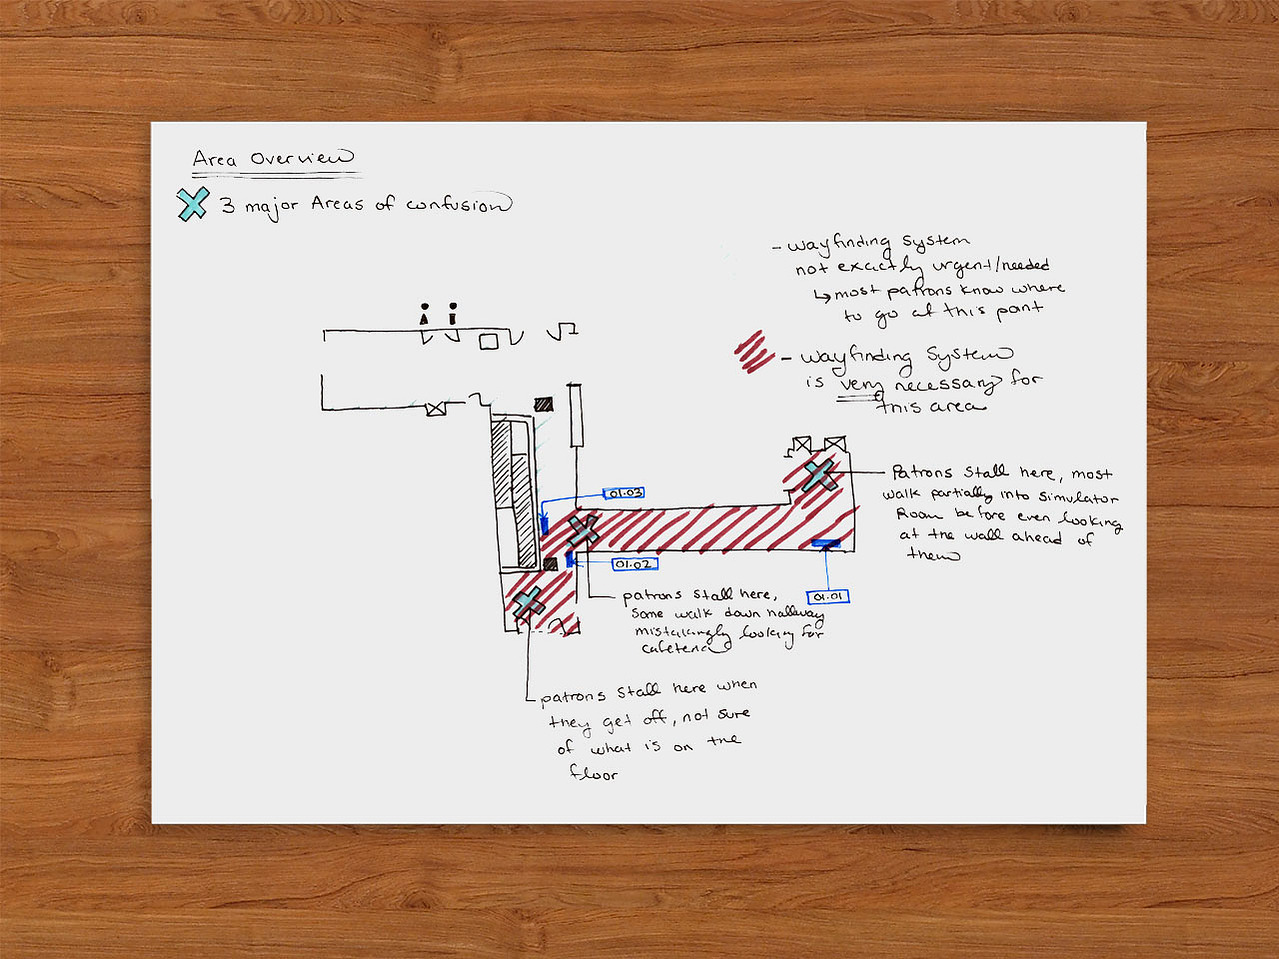 Area Overview
3 major Areas of confusion
- wayfinding system
not exactly urgent/needed
↳ most patrons know where
to go at this point
- wayfinding system
is very necessary for
this area
Patrons stall here, most
walk partially into simulator
Room before even looking
at the wall ahead of
them
01.03
01.02
01.01
patrons stall here,
some walk down hallway
mistakingly looking for
cafeteria
patrons stall here when
they get off, not sure
of what is on the
floor